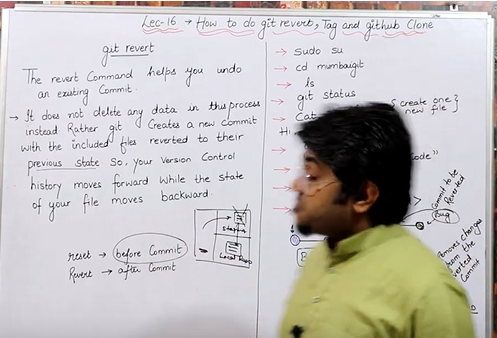 Lec-16 → How to do git revert, Tag and github Clone
git revert
The revert Command helps you undo
an existing Commit.
→ It does not delete any data in this process
instead Rather git Creates a new commit
with the included files reverted to their
previous state So, your Version Control
history moves forward while the state
of your file moves backward.
reset → before Commit
Revert → after Commit
Local Repo
→ sudo su
→ cd mumbaigit
→ ls
→ git status
→ Cat
{ create one
new file }
Code"
Commit to be
Reverted
Bug
Removes changes
from the
Commit